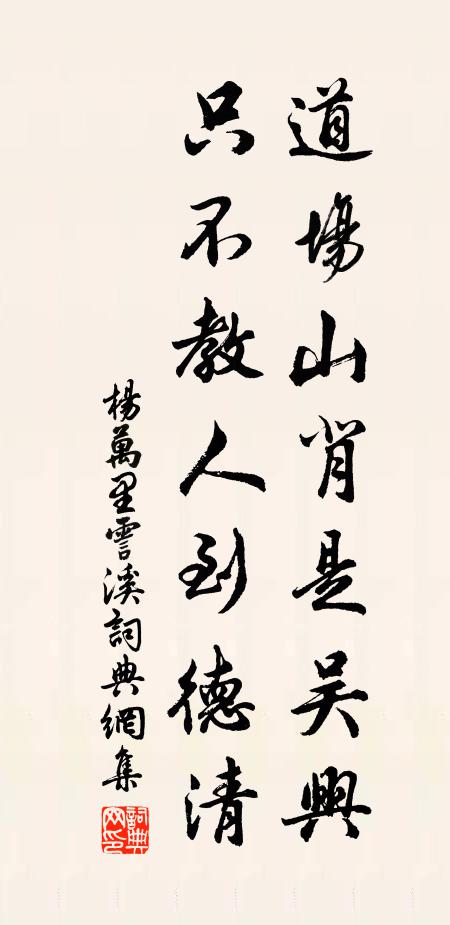 道場山背是吳興
只不教人到德清
楊萬里霅溪詞典網集
詞典
网印